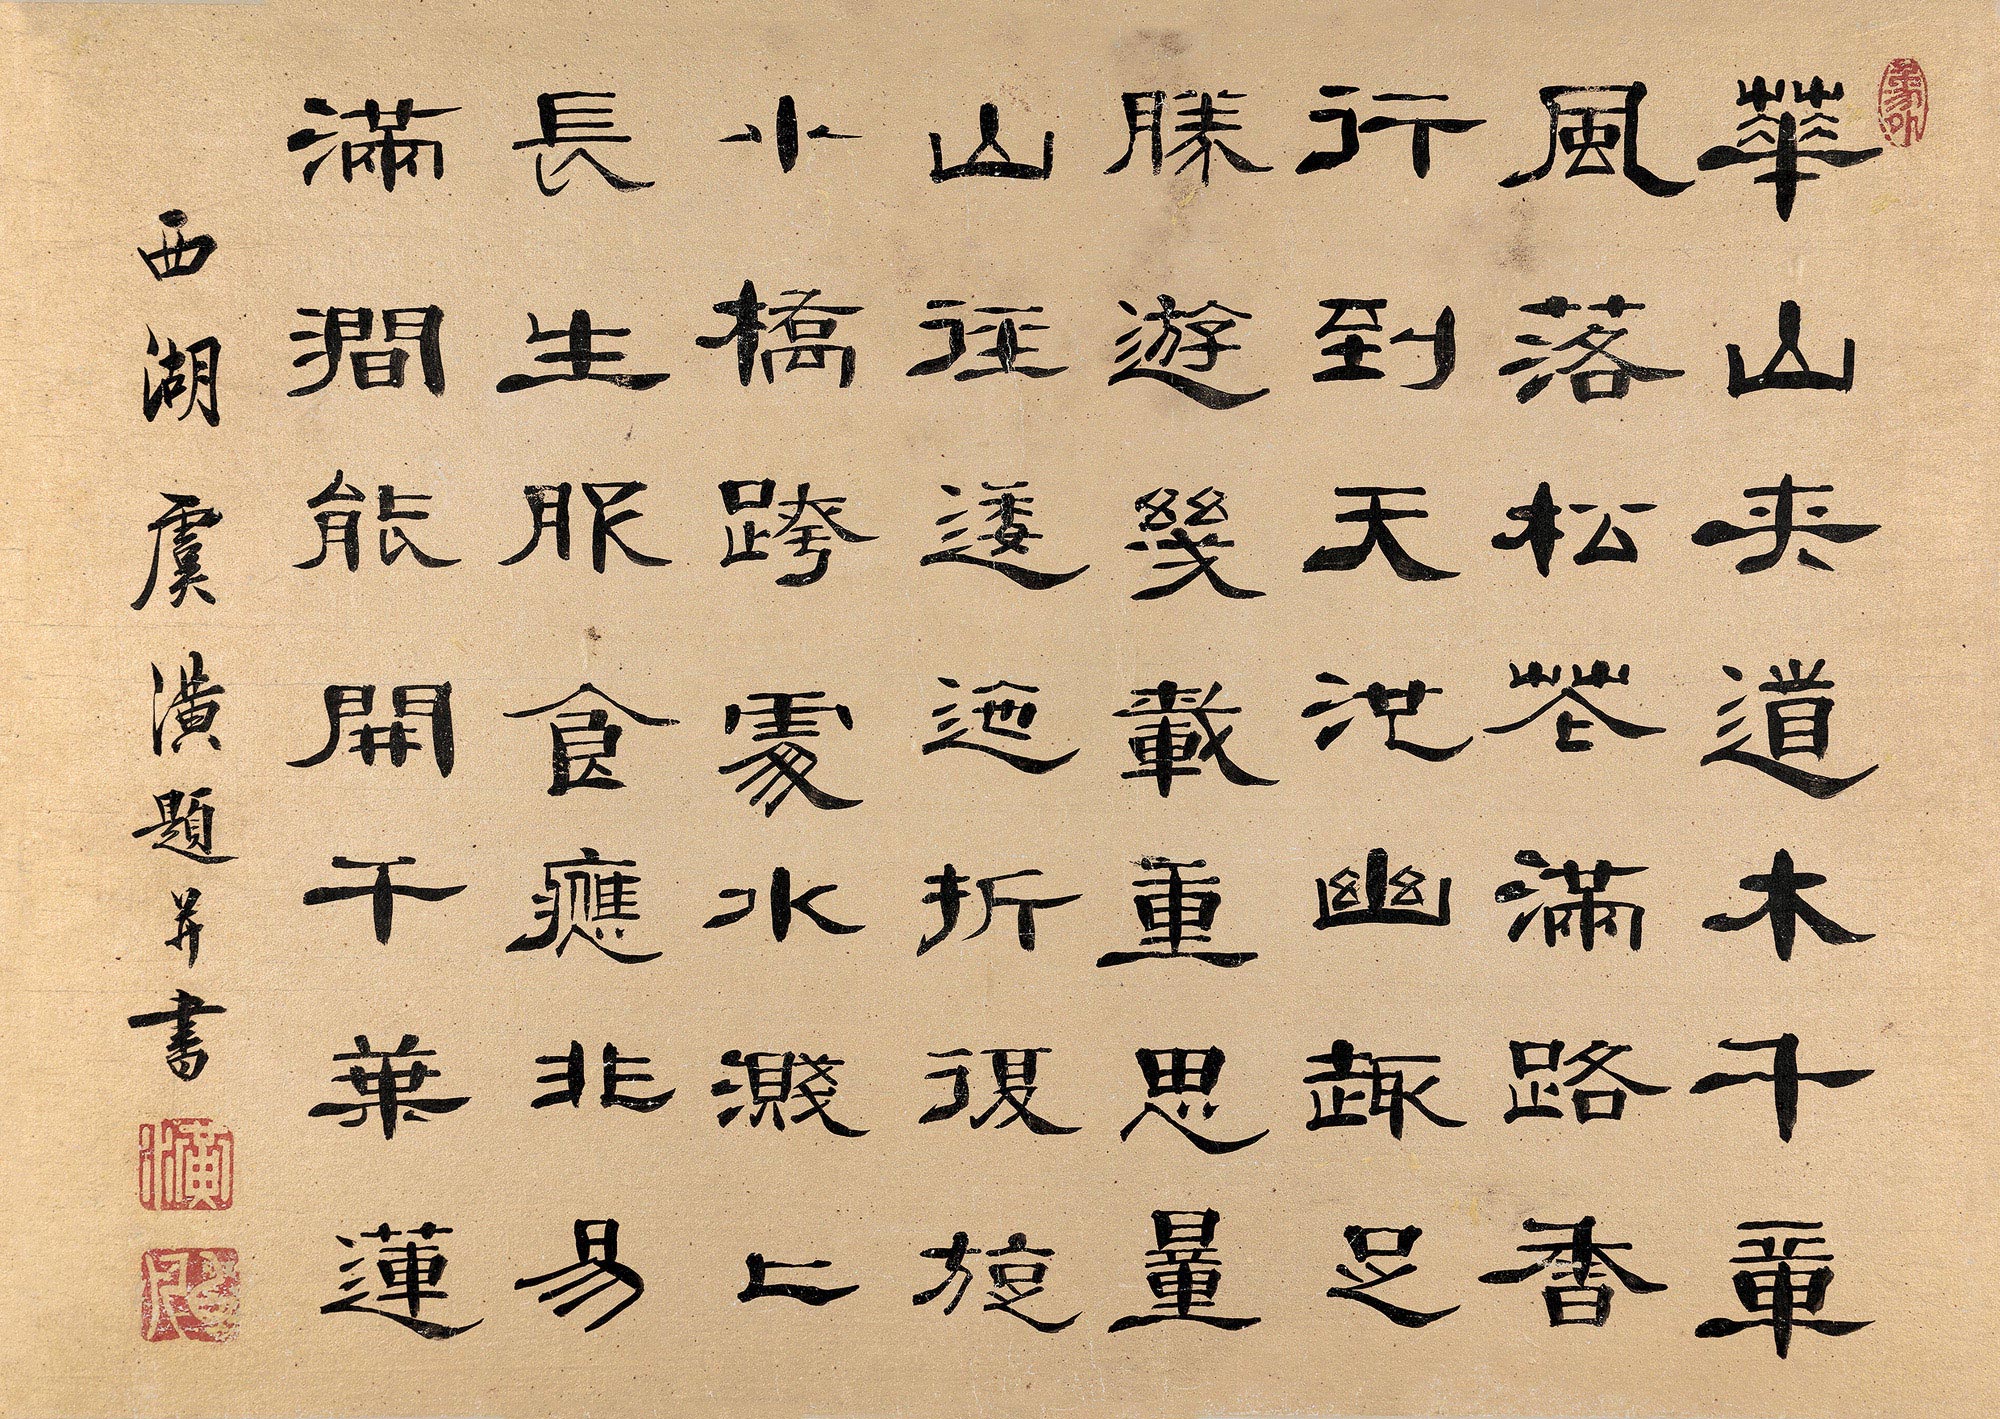 華山夾道木千章
風落松花滿路香
行到天池幽趣足
勝遊幾載重思量
山徑逶迤折復旋
小橋跨處水濺上
長生服食應非易
滿澗能開千葉蓮
西湖虞潢題并書